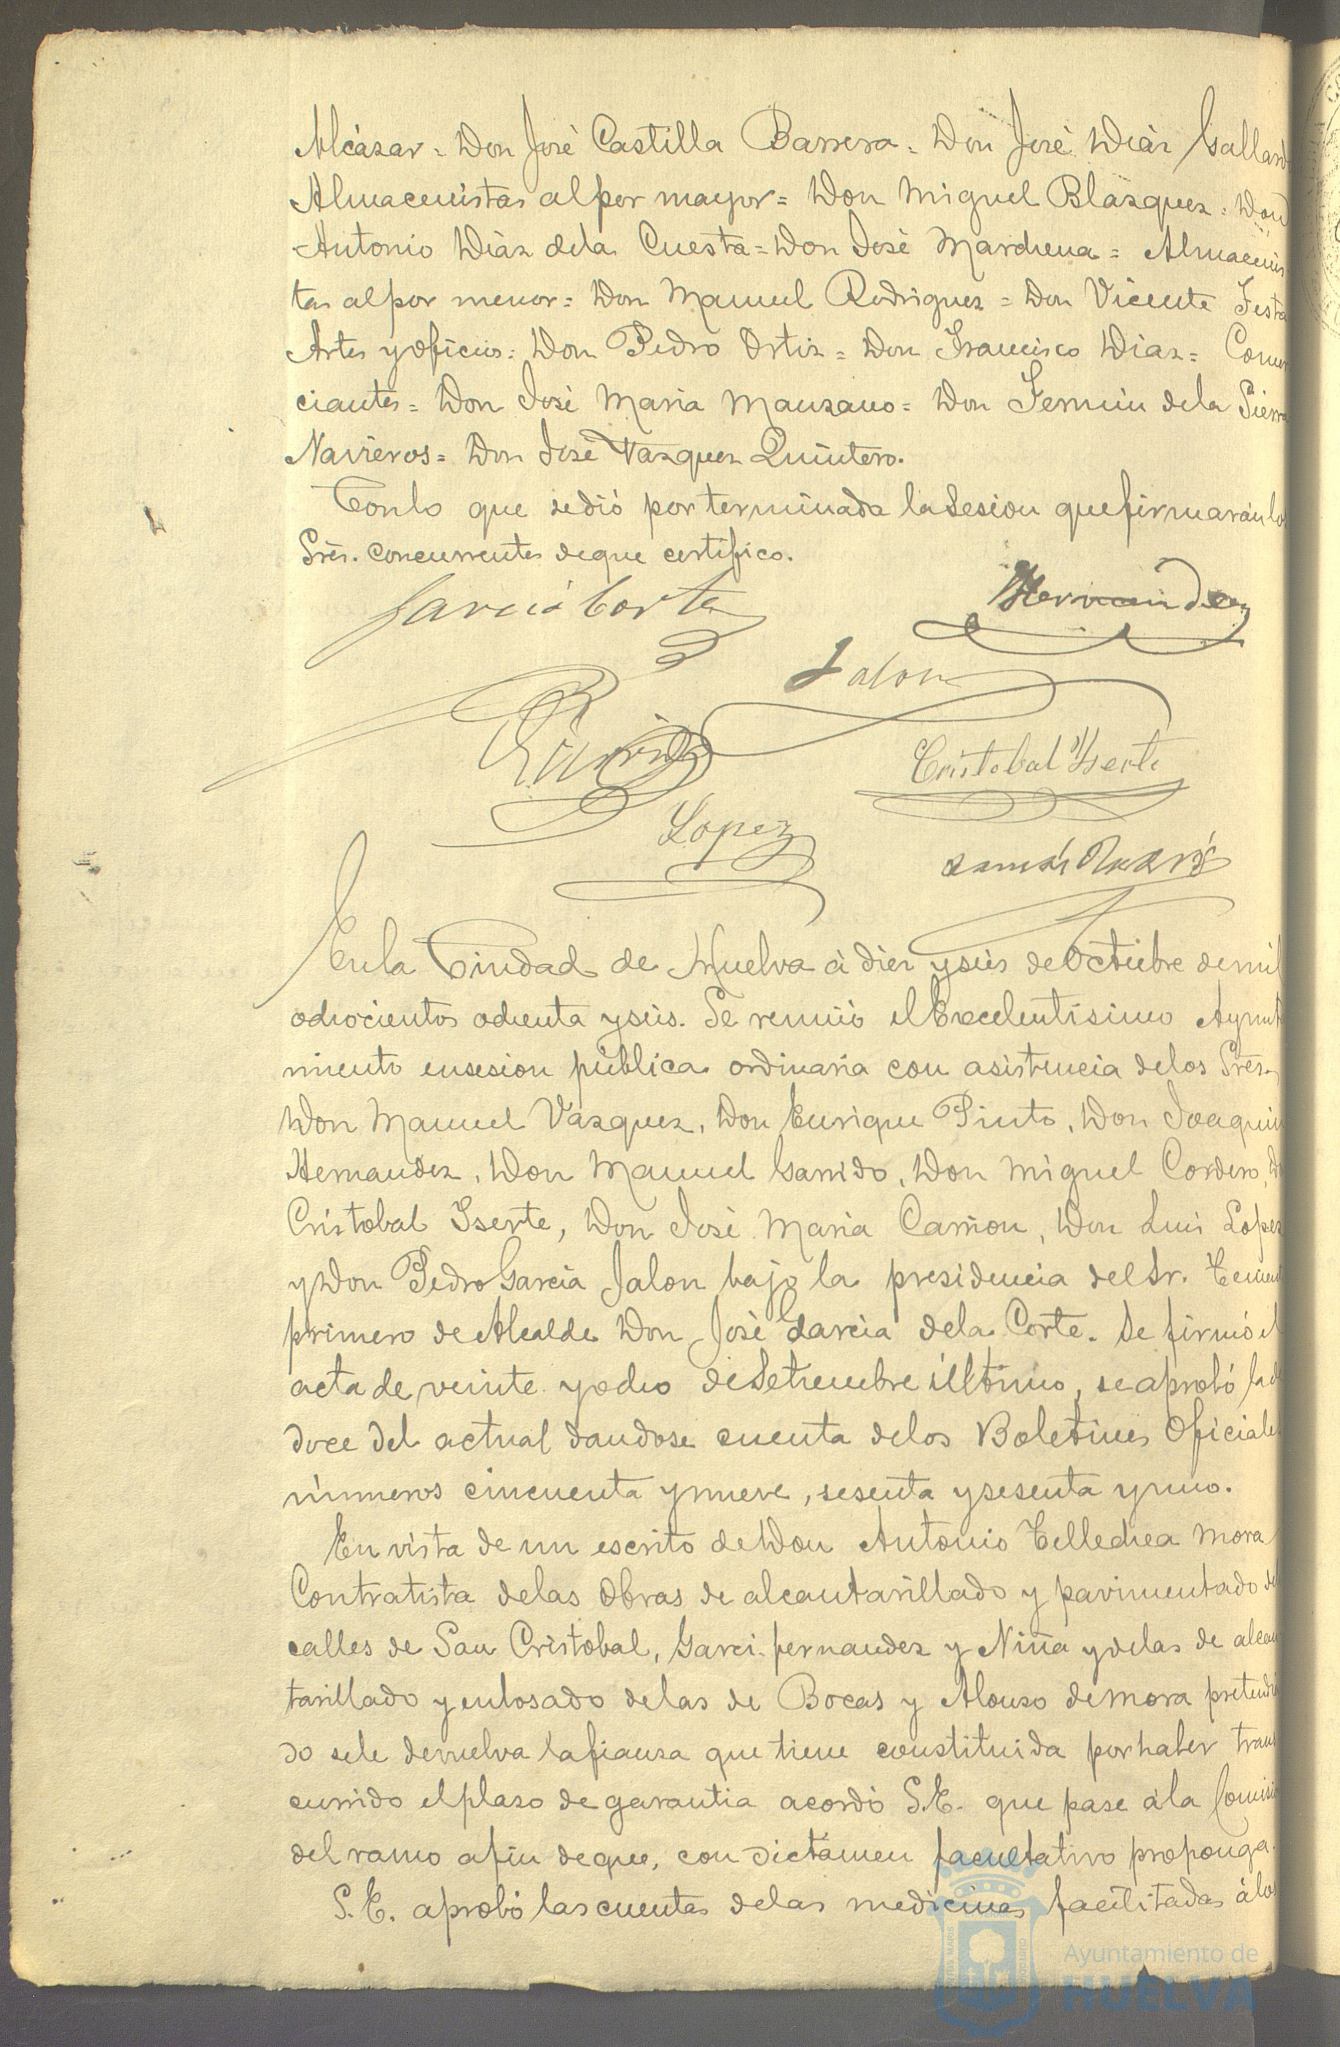 Alcázar = Don José Castilla Barrera = Don José Diaz Gallard
Almacenistas al por mayor = Don Miguel Blazquez = Don
Antonio Diaz de la Cuesta = Don José Marchena = Almacenis
tas al por menor = Don Manuel Rodriguez = Don Vicente Festa
Artes y oficios = Don Pedro Ortiz = Don Francisco Diaz = Comer
ciantes = Don José Maria Manzano = Don Fermin de la Sierra
Navieros = Don José Vazquez Quintero.
Con lo que se dió por terminada la sesion que firmarán los
Sres. concurrentes de que certifico.
Garcia Corte
Hernandez
Jalon
Cristobal Yserte
Lopez
En la Ciudad de Huelva á diez y seis de Octubre de mil
ochocientos ochenta y seis. Se reunió el Excelentisimo Ayunta
miento en sesion pública ordinaria con asistencia de los Sres.
Don Manuel Vazquez, Don Enrique Pinto, Don Joaquin
Hernandez, Don Manuel Garrido, Don Miguel Cordero, D.
Cristobal Iserte, Don José Maria Carrion, Don Luis Lopez
y Don Pedro Garcia Jalon bajo la presidencia del Sr. Tenient
primero de Alcalde Don José Garcia de la Corte. Se firmó el
acta de veinte y ocho de Setiembre último, se aprobó la de
doce del actual dandose cuenta de los Boletines Oficiales
números cincuenta y nueve, sesenta y sesenta y uno.
En vista de un escrito de Don Antonio Tellechea Mora
Contratista de las obras de alcantarillado y pavimentado de
calles de San Cristobal, Garci-fernandez y Niña y de las de alcan
tarillado y enlosado de las de Bocas y Alonso de Mora pretendien
do se le devuelva la fianza que tiene constituida por haber trans
currido el plazo de garantia acordó S.E. que pase á la Comisio
del ramo a fin de que, con dictamen facultativo proponga.
S.E. aprobó las cuentas de las medicinas facilitadas á los
Ayuntamiento de
HUELVA